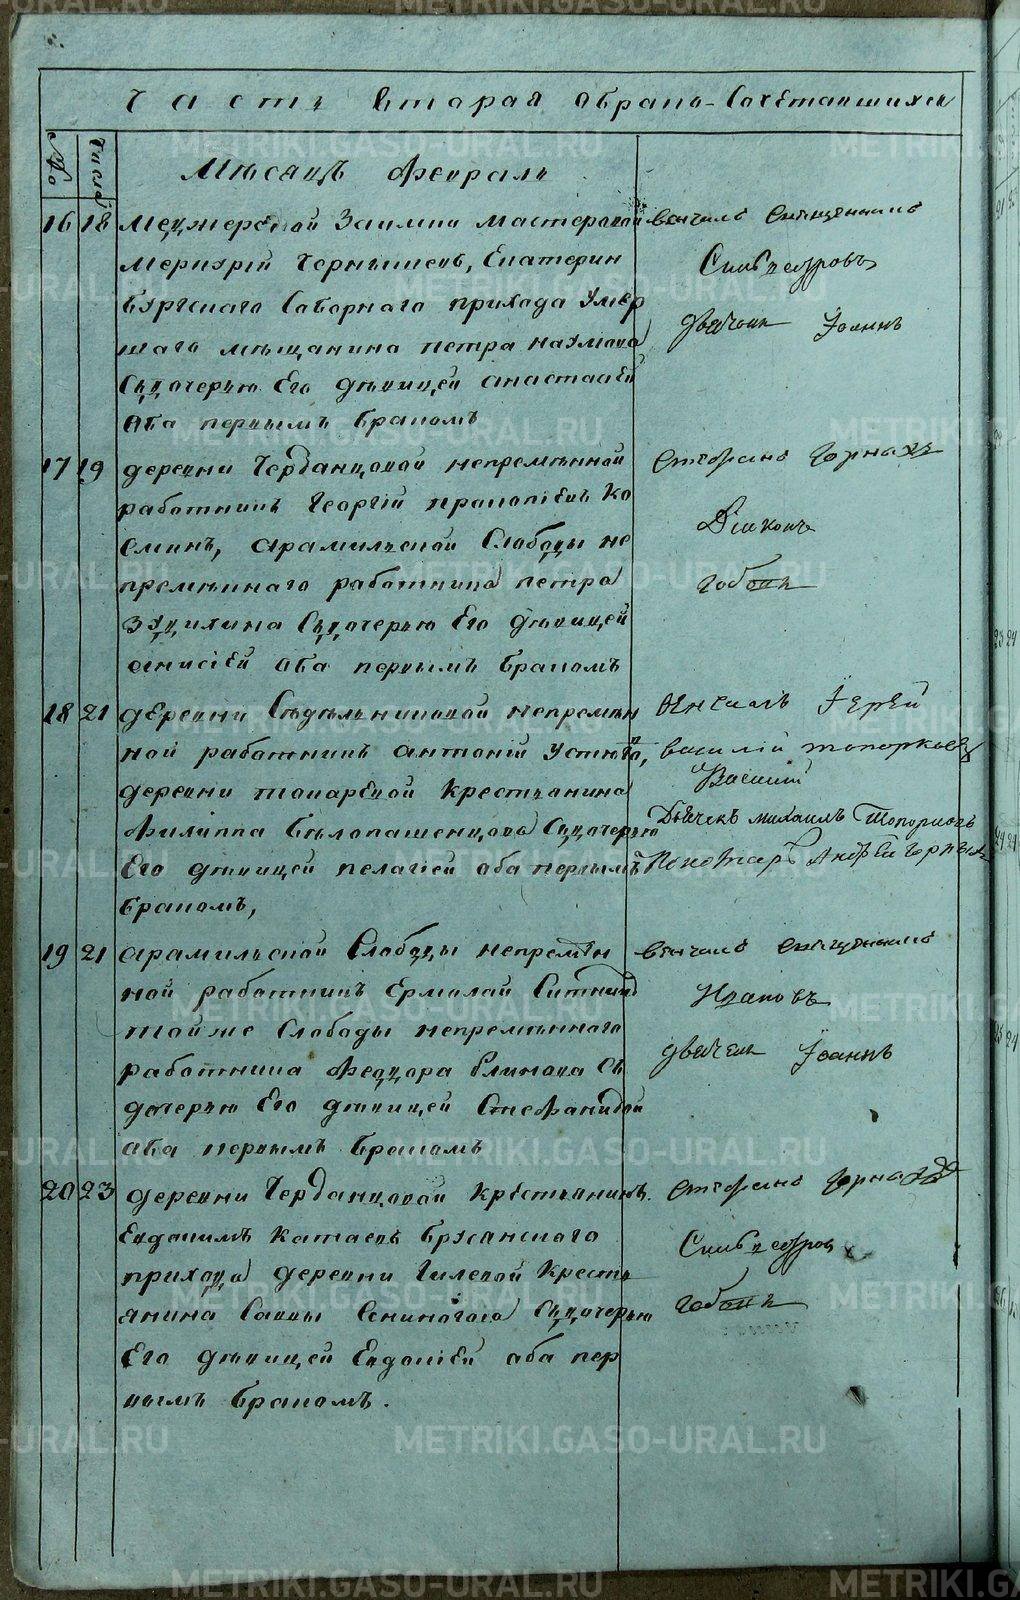 Часть вторая о Брако-Сочетавшихся
№
Число
Мѣсяцъ Февраль
16 18 Мезжерской Заимки мастеровой
Меркурій Чернышевъ, Екатерин
бургскаго Соборнаго прихода умер
шаго мѣщанина Петра Наумова
съ дочерью Его дѣвицей Анастасіей
Оба первымъ бракомъ
Вѣнчалъ священникъ
Сильвестровъ
Дьячокъ Іоаннъ
17 19 деревни Черданцовой непремѣнной
работникъ Георгій Прокопіевъ Ко
синъ, Арамильской Слободы не
премѣннаго работника Петра
съ дочерью Его дѣвицей
Анисіей Оба первымъ бракомъ
Стефанъ Горныхъ
Діаконъ
18 21 деревни Сѣдѣльниковой непремѣн
ной работникъ Антоній
деревни Токаревой Крестьянина
Филиппа Бѣлопашенцова съ дочерью
Его дѣвицей Пелагіей оба первымъ
бракомъ,
Вѣнчалъ Іерей
Василій Топорковъ
Василій
Дьячекъ Михаилъ Топорковъ
Пономарь Андрей Горныхъ
19 21 Арамильской Слободы непремѣн
ной работникъ Ермолай Ситник
той же Слободы непремѣннаго
работника Феодора Климова съ
дочерью Его дѣвицей Стефанидой
оба первымъ бракомъ
Вѣнчалъ священникъ
Дьячекъ Іоаннъ
20 23 деревни Черданцовой Крестьянинъ
Евдокимъ Катаевъ Брусянскаго
прихода деревни Гилевой Кресть
янина Саввы съ дочерью
Его дѣвицей Евдокіей оба пер
вымъ бракомъ.
Стефанъ Горныхъ
Сильвестров
METRIKI.GASO-URAL.RU